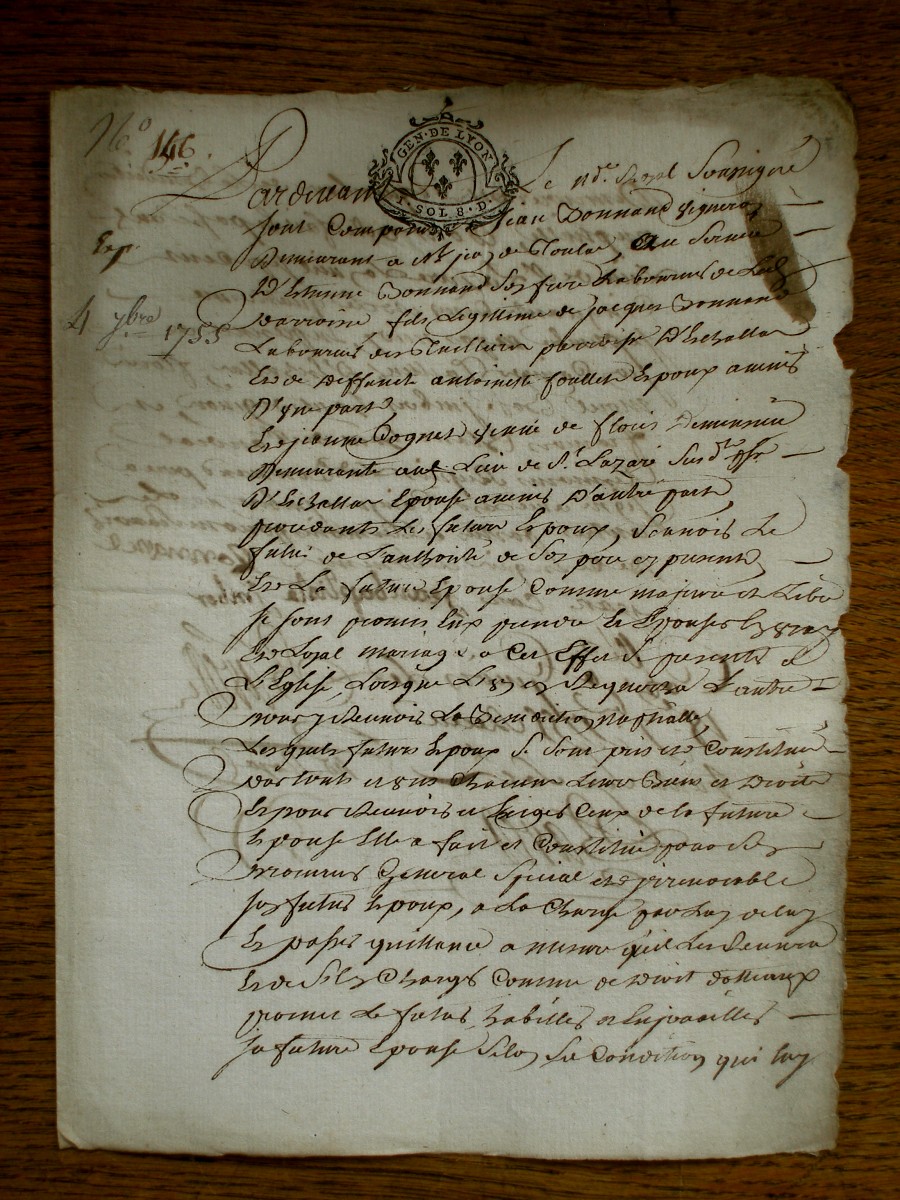 No 146.
GEN·DE LYON
1·SOL 8·D.
Pardevant Le nore Royal soussigné
sont comparus jean Bonnand vigneron
Demeurant a St jean de Toulas, au service
D'Etienne Bonnand son frere Laboureur
fils Legitime de jacques Bonnand
Laboureur des Tuillieres parroisse D'Echallas
Et de deffunte antoinette Epoux avenir
D'une part,
Exp.
4 9bre 1755
Et jeanne vefve de fleuri
Demeurante au Lieu de St Lazare susdte psse
D'Echallas Epouse avenir D'autre part,
procedants Les futurs Epoux, scavoir Le
futur de L'authorité de son pere cy present,
Et La future Epouse comme majeure et Libre
se sont promis Eux prendre et Epouser En vray
Et Loyal mariage a cet Effet se presenter a
L'Eglise, Lorsque L'un En Requerra L'autre
pour y Recevoir La Benediction nuptialle,
Lesquels futurs Epoux se sont pris et constitués
par touts et uns chacuns Leurs Biens et Droits
Et pour Recevoir et Exiger ceux de la future
Epouse Elle a fait et constitué pour son
procureur General special et irrevocable
son futur Epoux, a La charge par Luy de luy
En passer quittance a mesure qu'il Les Recevra
Et de s'En charger comme de Droit dotteaux
promet Le futur habiller et Enjoailler
sa future Epouse selon sa condition qui luy